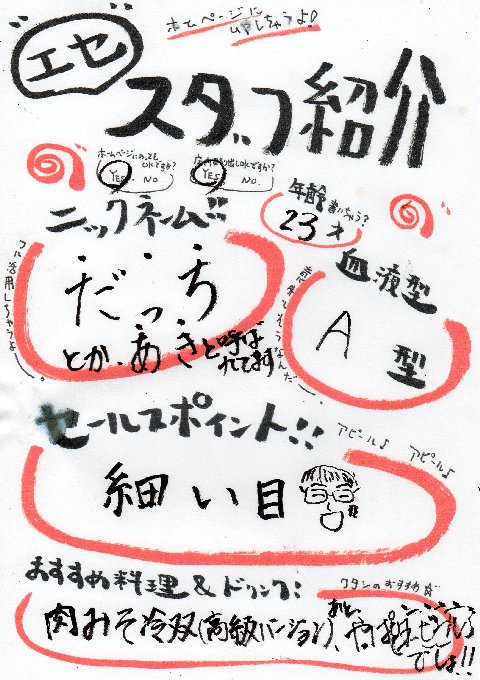 ホームページに
しちゃうよ!
エセ
スタッフ紹介
ホームページにのっても
OKですか?
YES NO
店内貼り出しOKですか?
YES NO
年齢書いちゃう?
23才
ニックネーム!!
フル活用しちゃうよ
だっち
とか、あきと呼ば
れてます
血液型
A
型
セールスポイント!!
アピール♪
アピール♪
細い目
おすすめ料理&ドリンク:
ワタシのおすすめ☆
肉みそ冷奴(高級バージョン)、
でしょ!!